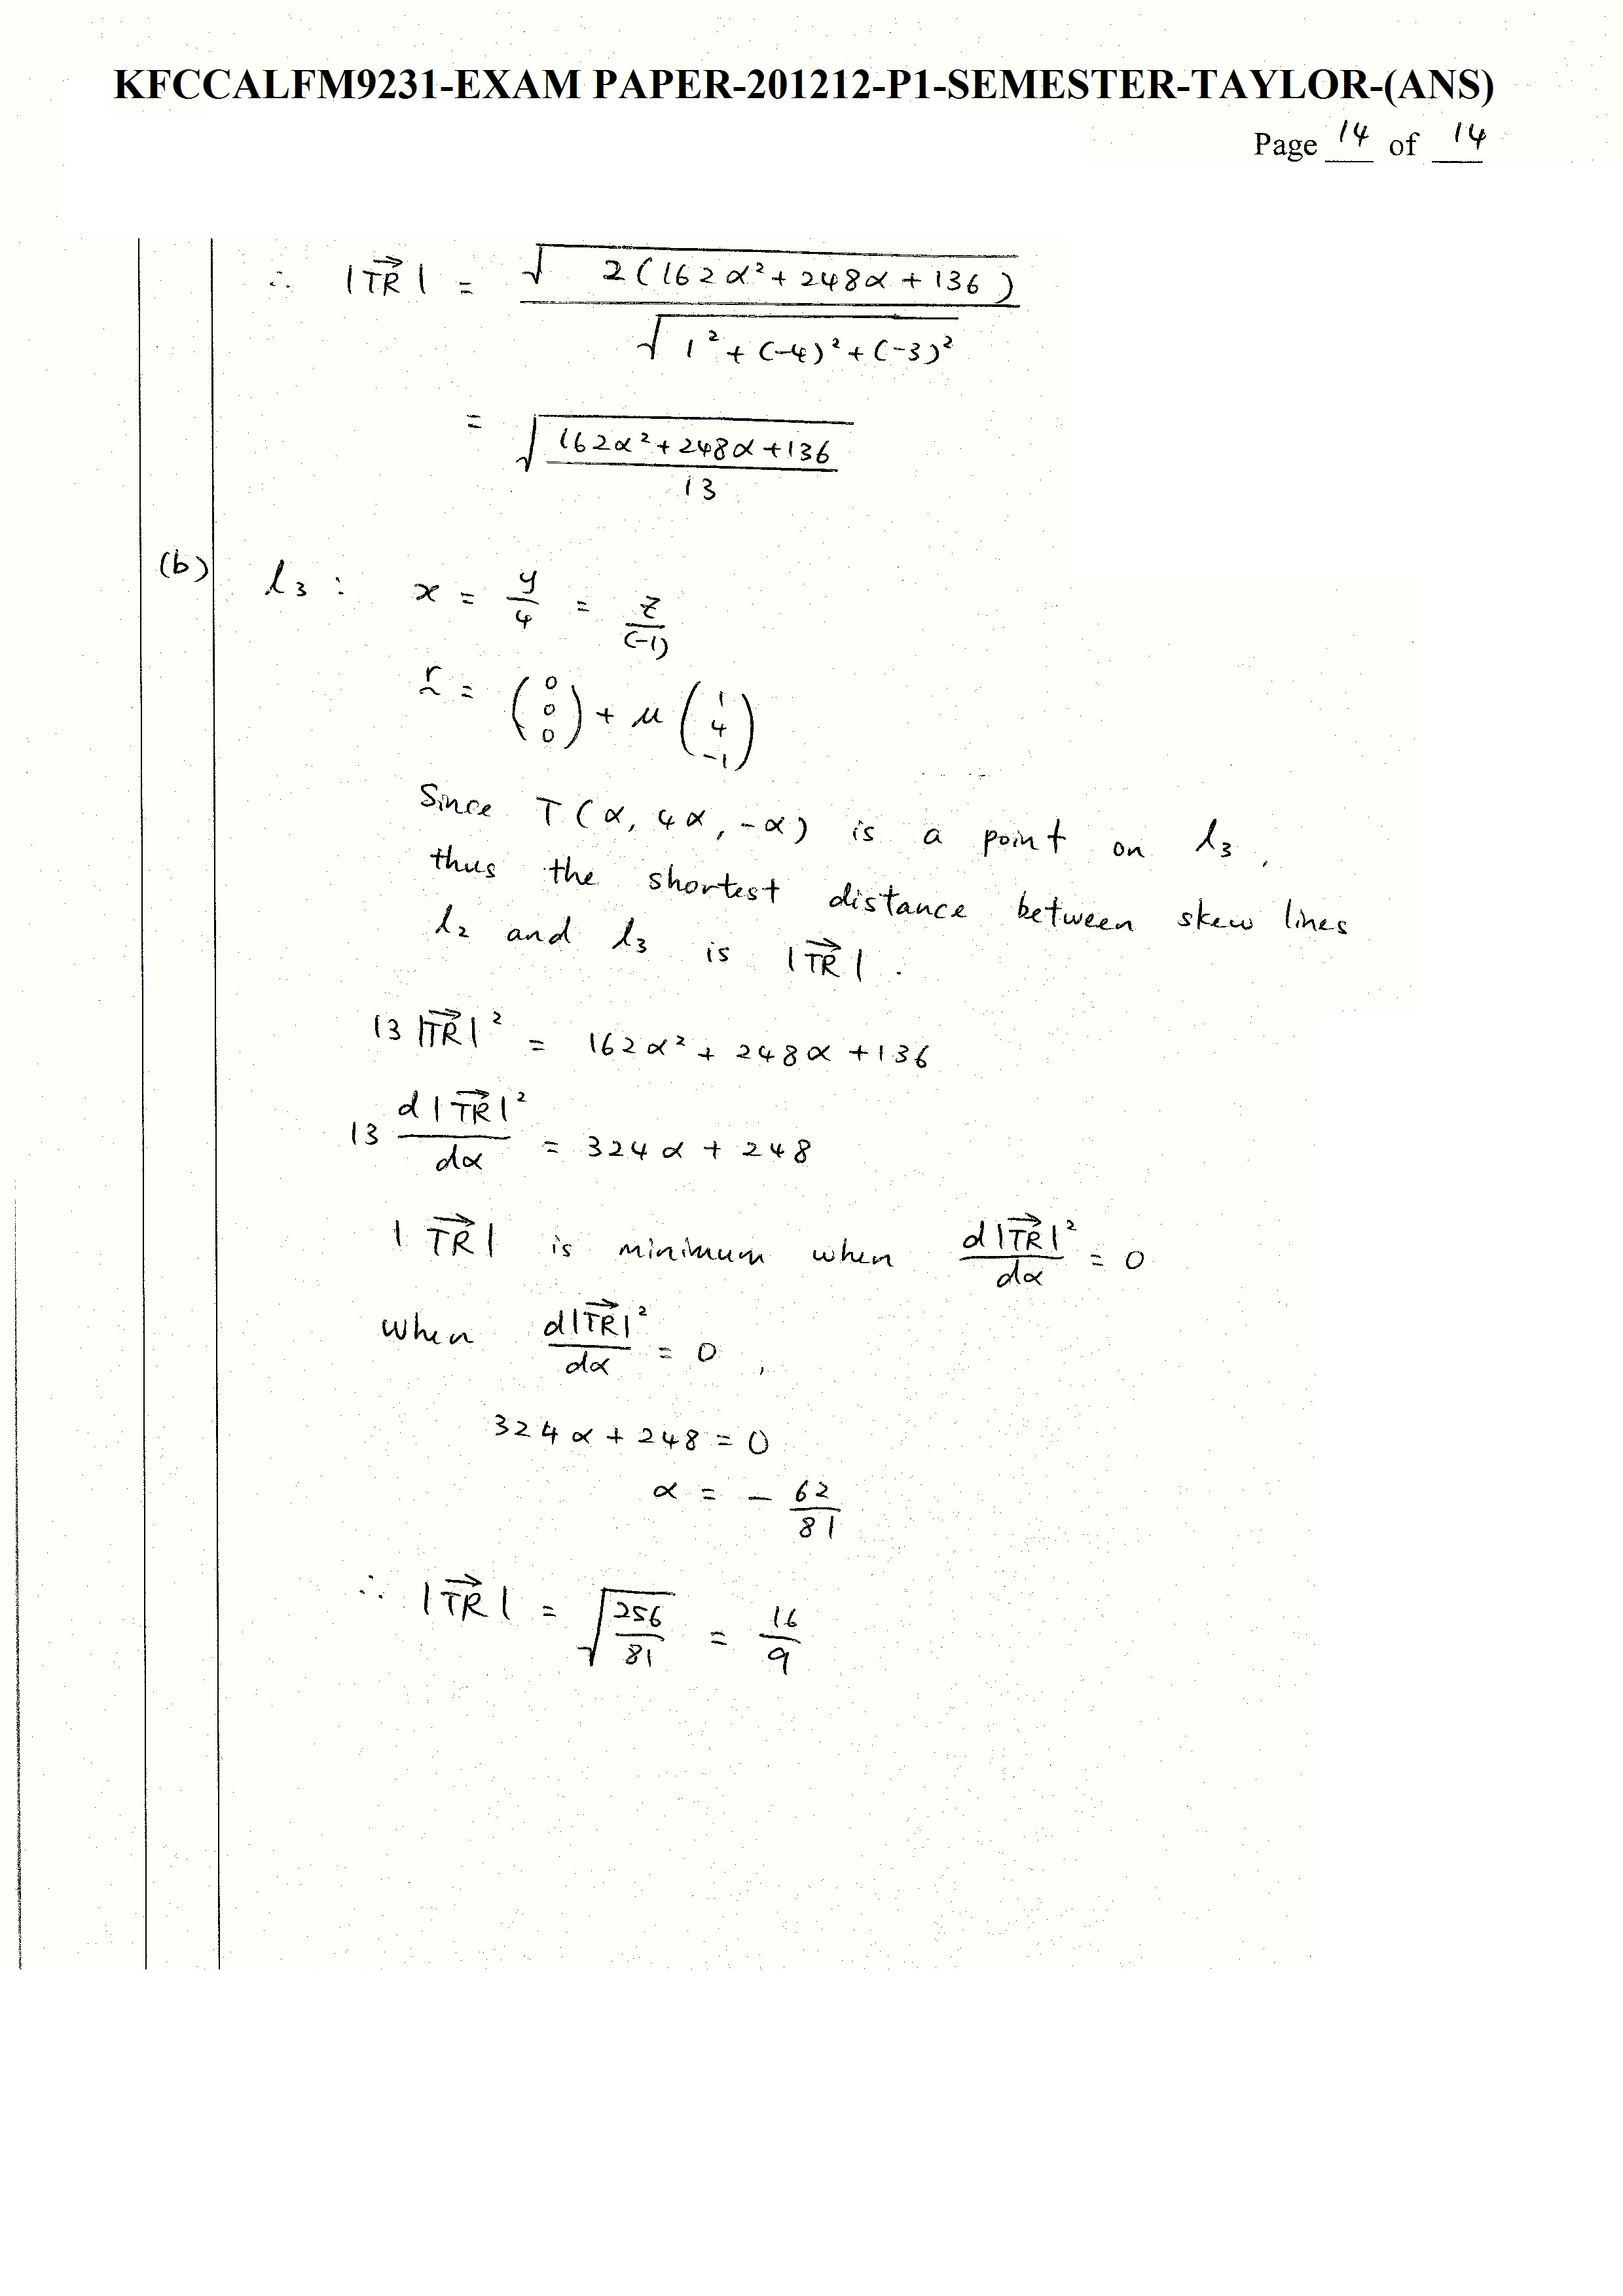 KFCCALFM9231-EXAM PAPER-201212-P1-SEMESTER-TAYLOR-(ANS)
Page 14 of 14
∴ |TR→| = √(2(162α² + 248α + 136)) / √(1² + (-4)² + (-3)²)
= √((162α² + 248α + 136) / 13)
(b) l₃ : x = y/4 = z/(-1)
r̰ = (0 0 0) + μ (1 4 -1)
Since T(α, 4α, -α) is a point on l₃,
thus the shortest distance between skew lines
l₂ and l₃ is |TR→|.
13 |TR→|² = 162α² + 248α + 136
13 d|TR→|²/dα = 324α + 248
|TR→| is minimum when d|TR→|²/dα = 0
When d|TR→|²/dα = 0,
324α + 248 = 0
α = - 62/81
∴ |TR→| = √(256/81) = 16/9